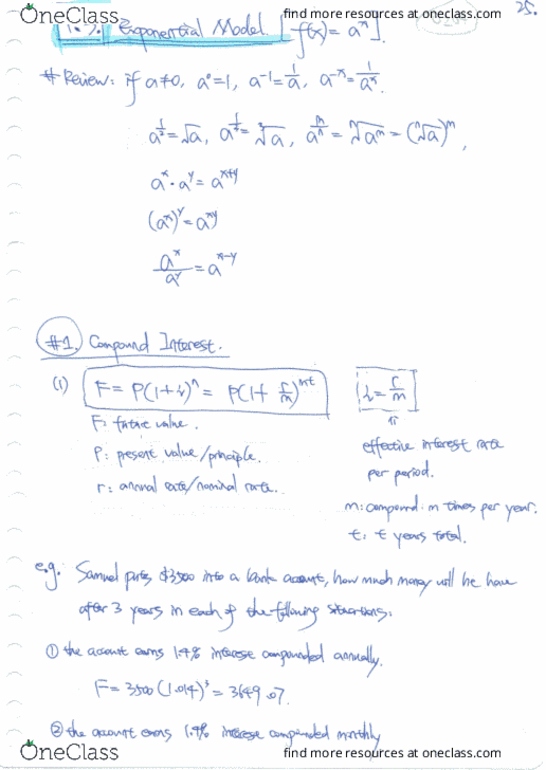 OneClass find more resources at oneclass.com
25.
Exponential Model. [f(x) = aⁿ].
# Review: if a≠0, a⁰=1, a⁻¹=1/a, a⁻ˣ=1/aˣ.
a^(1/2)=√a, a^(1/3)=∛a, a^(m/n) = ⁿ√(a^m) = (ⁿ√a)^m,
aˣ·aʸ = aˣ⁺ʸ
(aˣ)ʸ = aˣʸ
aˣ/aʸ = aˣ⁻ʸ
#1. Compound Interest.
(1) F = P(1+i)ⁿ = P(1+ r/m)^(mt) i = r/m
F: future value.
P: present value/principle.
r: annual rate/nominal rate.
effective interest rate
per period.
m: compound m times per year.
t: t years total.
e.g. Samuel puts $3500 into a bank account, how much money will he have
after 3 years in each of the following situations.
① the account earns 1.4% interese compounded annually.
F = 3500(1.014)³ = 3649.07.
② the account earns 1.4% interese compounded monthly
OneClass find more resources at oneclass.com